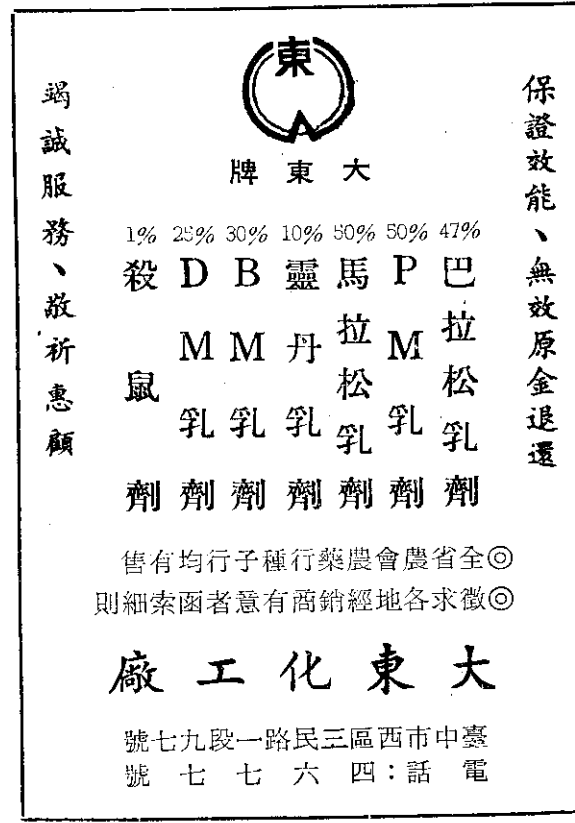 東
大東牌
保證效能、無效原金退還
47%巴拉松乳劑
50%PM乳劑
50%馬拉松乳劑
10%靈丹乳劑
30%BM乳劑
25%DM乳劑
1%殺鼠劑
竭誠服務、敬祈惠顧
◎全省農會農藥行種子行均有售
◎徵求各地經銷商有意者函索細則
大東化工廠
臺中市西區三民路一段九七號
電話：四六七七號